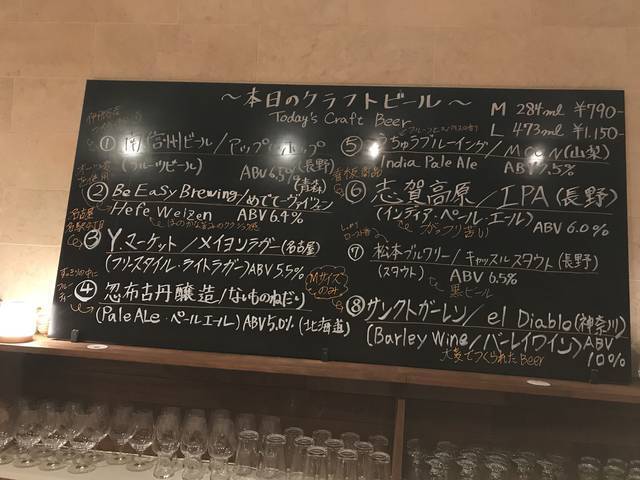 ～本日のクラフトビール～
Today's Craft Beer
M 284ml ¥790-
L 473ml ¥1,150-
① 信州ビール/アップルホップ
(フルーツビール) ABV 6.5% (長野)
② Be Easy Brewing/めでてーヴァイツェン (青森)
Hefe Weizen ABV 6.4%
③ Y.マーケット/メイヨンラガー(名古屋)
(フリースタイル・ライトラガー) ABV 5.5%
④ 忽布古丹醸造/ないものねだり
(Pale Ale・ペールエール) ABV 5.0% (北海道)
Mサイズのみ
⑤ うちゅうブルーイング/MOON(山梨)
India Pale Ale ABV 7.5%
看板商品
⑥ 志賀高原/IPA(長野)
(インディア・ペール・エール) ABV 6.0%
ガッツリ苦い
⑦ 松本ブルワリー/キャッスルスタウト(長野)
(スタウト) ABV 6.5%
黒ビール
⑧ サンクトガーレン/el Diablo(神奈川)
(Barley Wine/バーレイワイン) ABV 10%
大麦でつくられたBeer